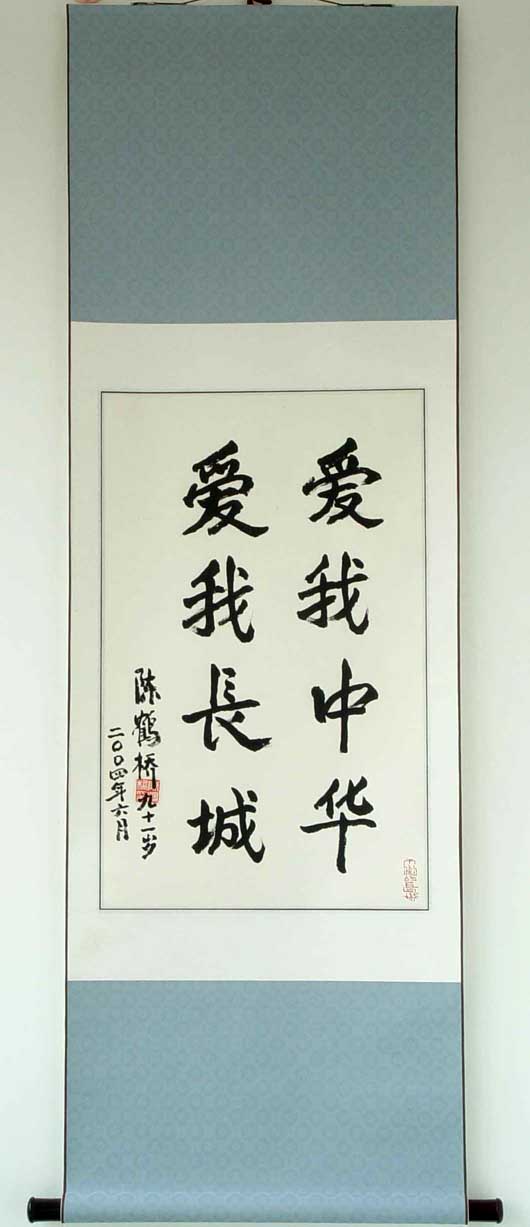 爱我中华
爱我長城
陈鹤桥九十一岁
二〇〇四年六月